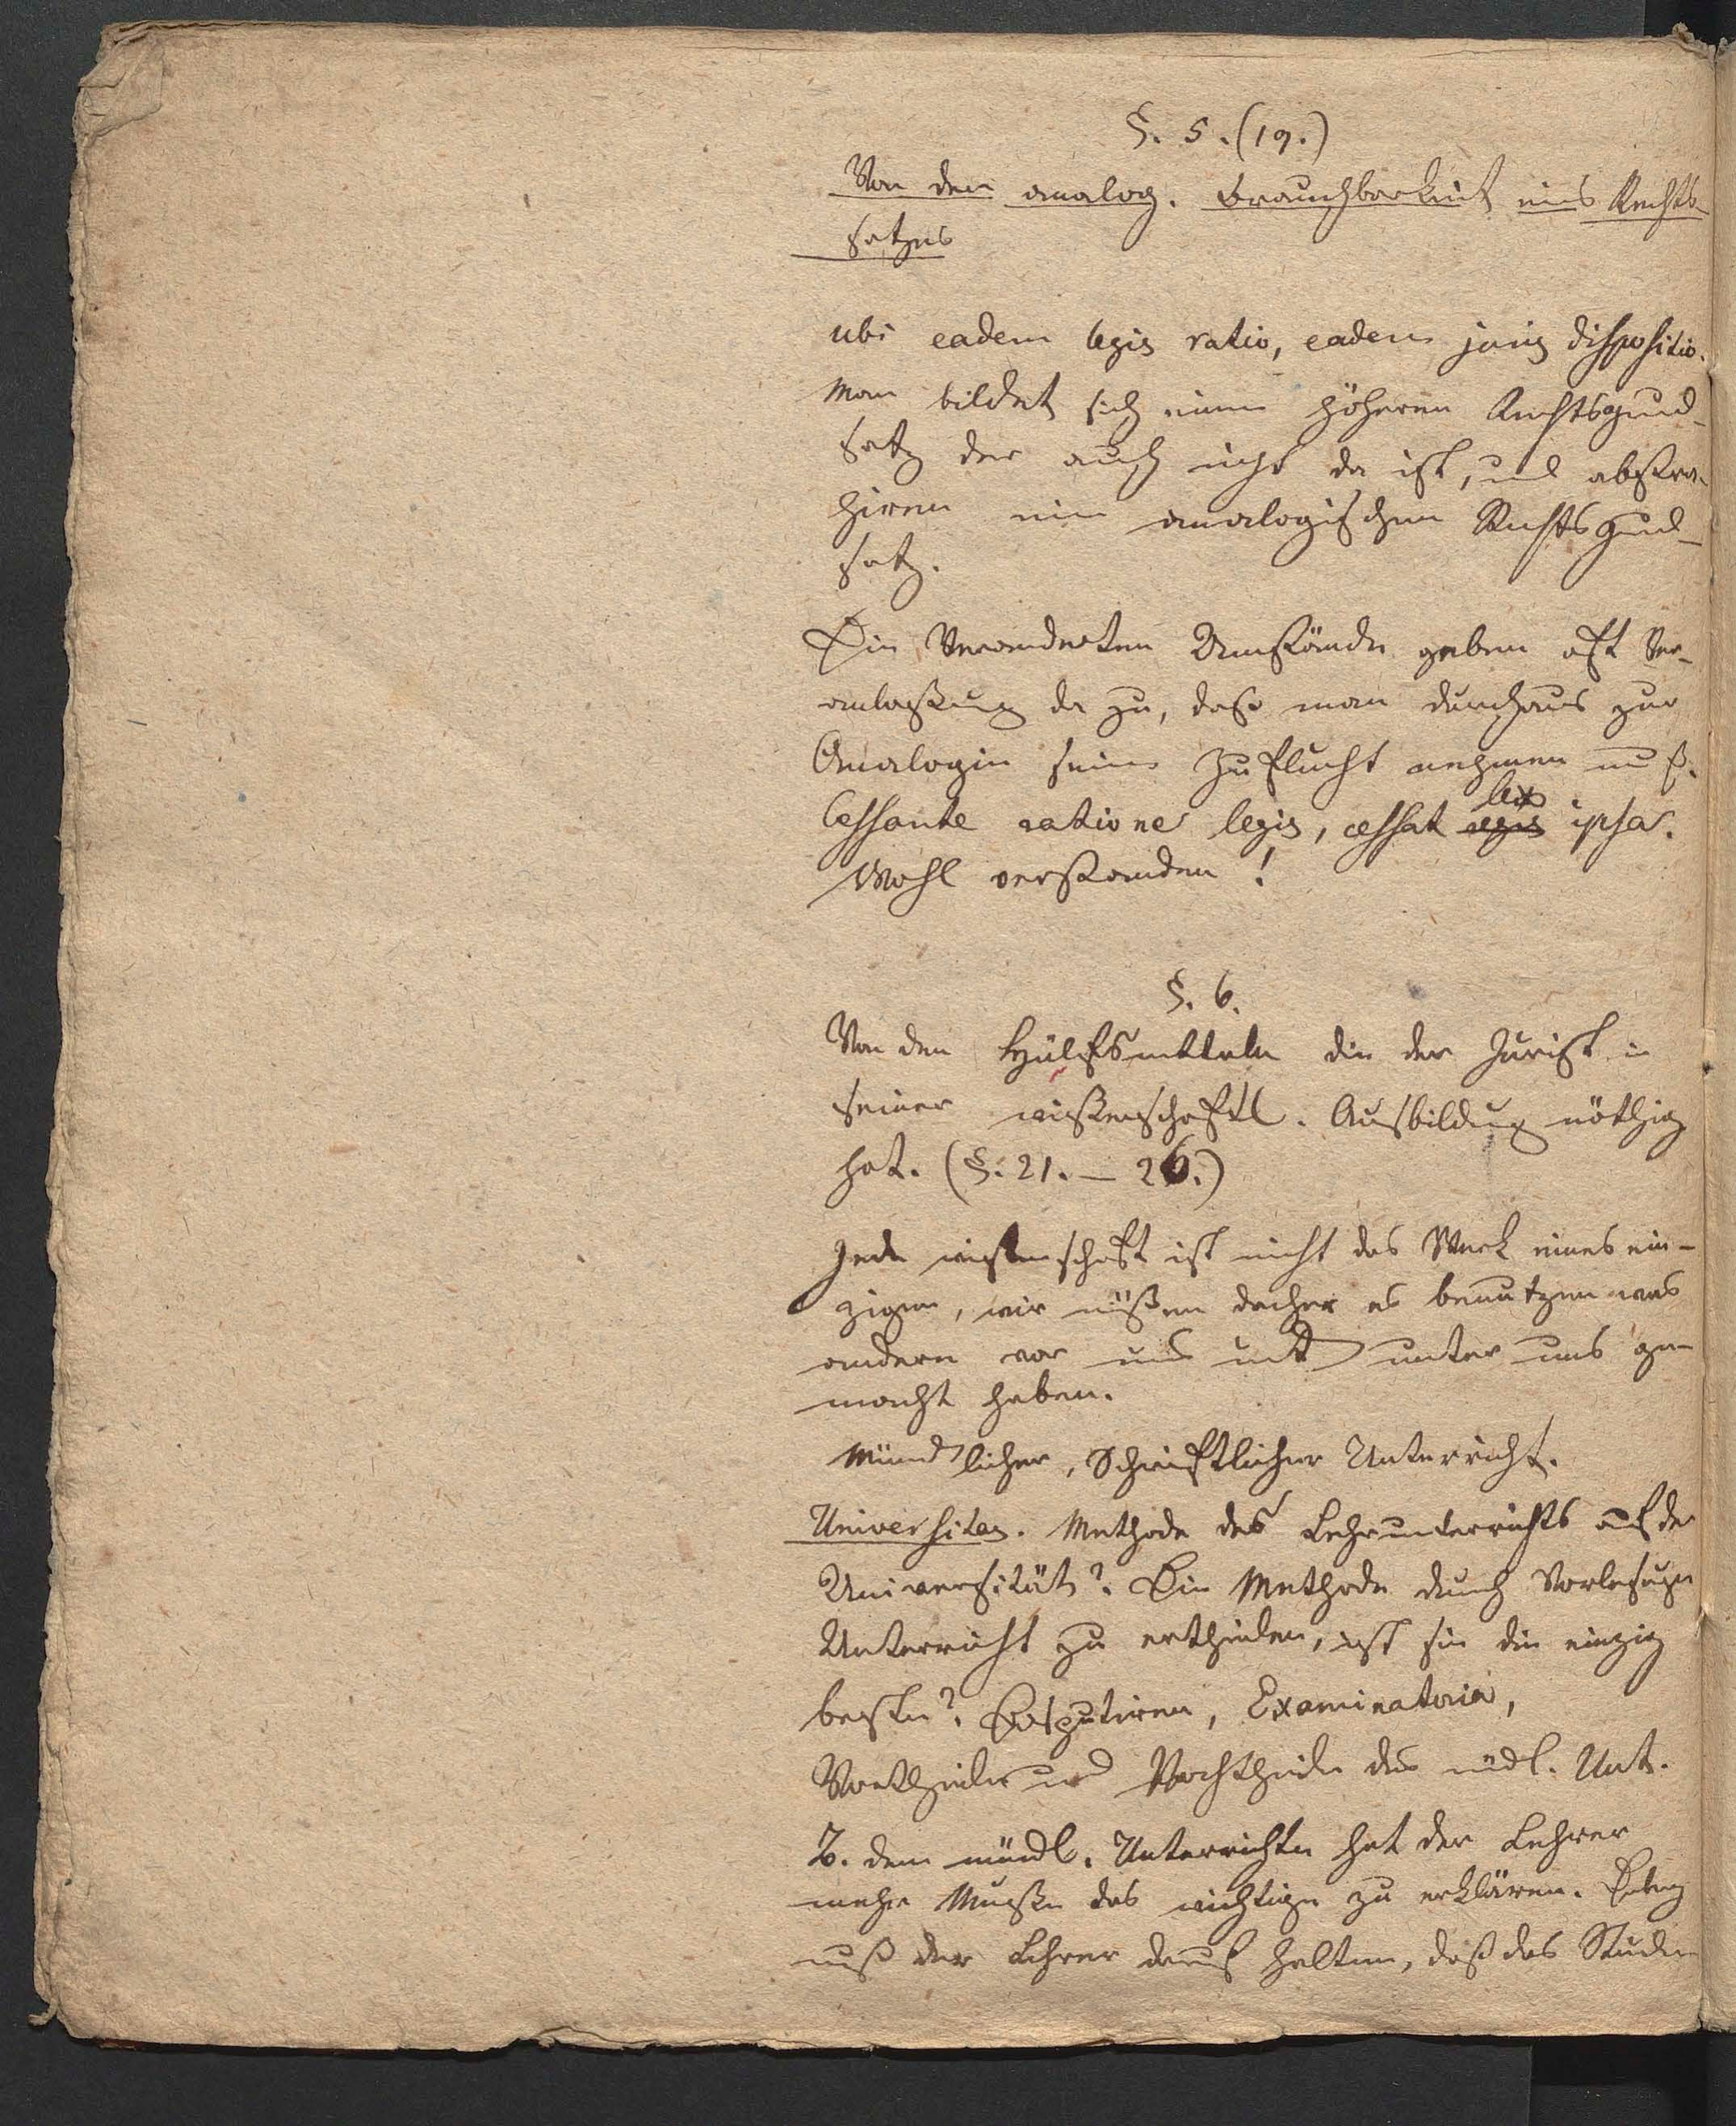 §. 5. (19.)
Von der analog. Brauchbarkeit eines Rechts-
satzes
ubi eadem legis ratio, eadem juris dispositio.
Man bildet sich einen höheren Rechtsgrund-
satz der auch nicht da ist, und abstra-
hiren ein analogischen Rechtsgrund-
satz.
Die Veränderten Umstände geben oft Ver-
anlaßung da zu, daß man durchaus zur
Analogie seine Zuflucht nehmen muß.
Cessante ratione legis, cessat lex ipsa.
Wohl verstanden!
§. 6.
Von den Hülfsmitteln die der Jurist in
seiner wißenschaftl. Ausbildung nöthig
hat. (§. 21. – 26.)
Jede wißenschaft ist nicht das Werk eines ein-
zigen, wir müßen daher es benutzen was
andern vor uns und unter uns ge-
macht haben.
Mündlicher, Schriftlicher Unterricht.
Universitas. Methode des Lehrunterrichts auf der
Universität? Die Methode durch Vorlesungen
Unterricht zu ertheilen, ist sie die einzig
beste? Disputiren, Examinatoria,
Vortheile und Nachtheile des mündl. Unt.
B. dem mündl. Unterrichte hat der Lehrer
mehr Muße das wichtige zu erklären.
muß der Lehrer darauf halten, daß das Studi-